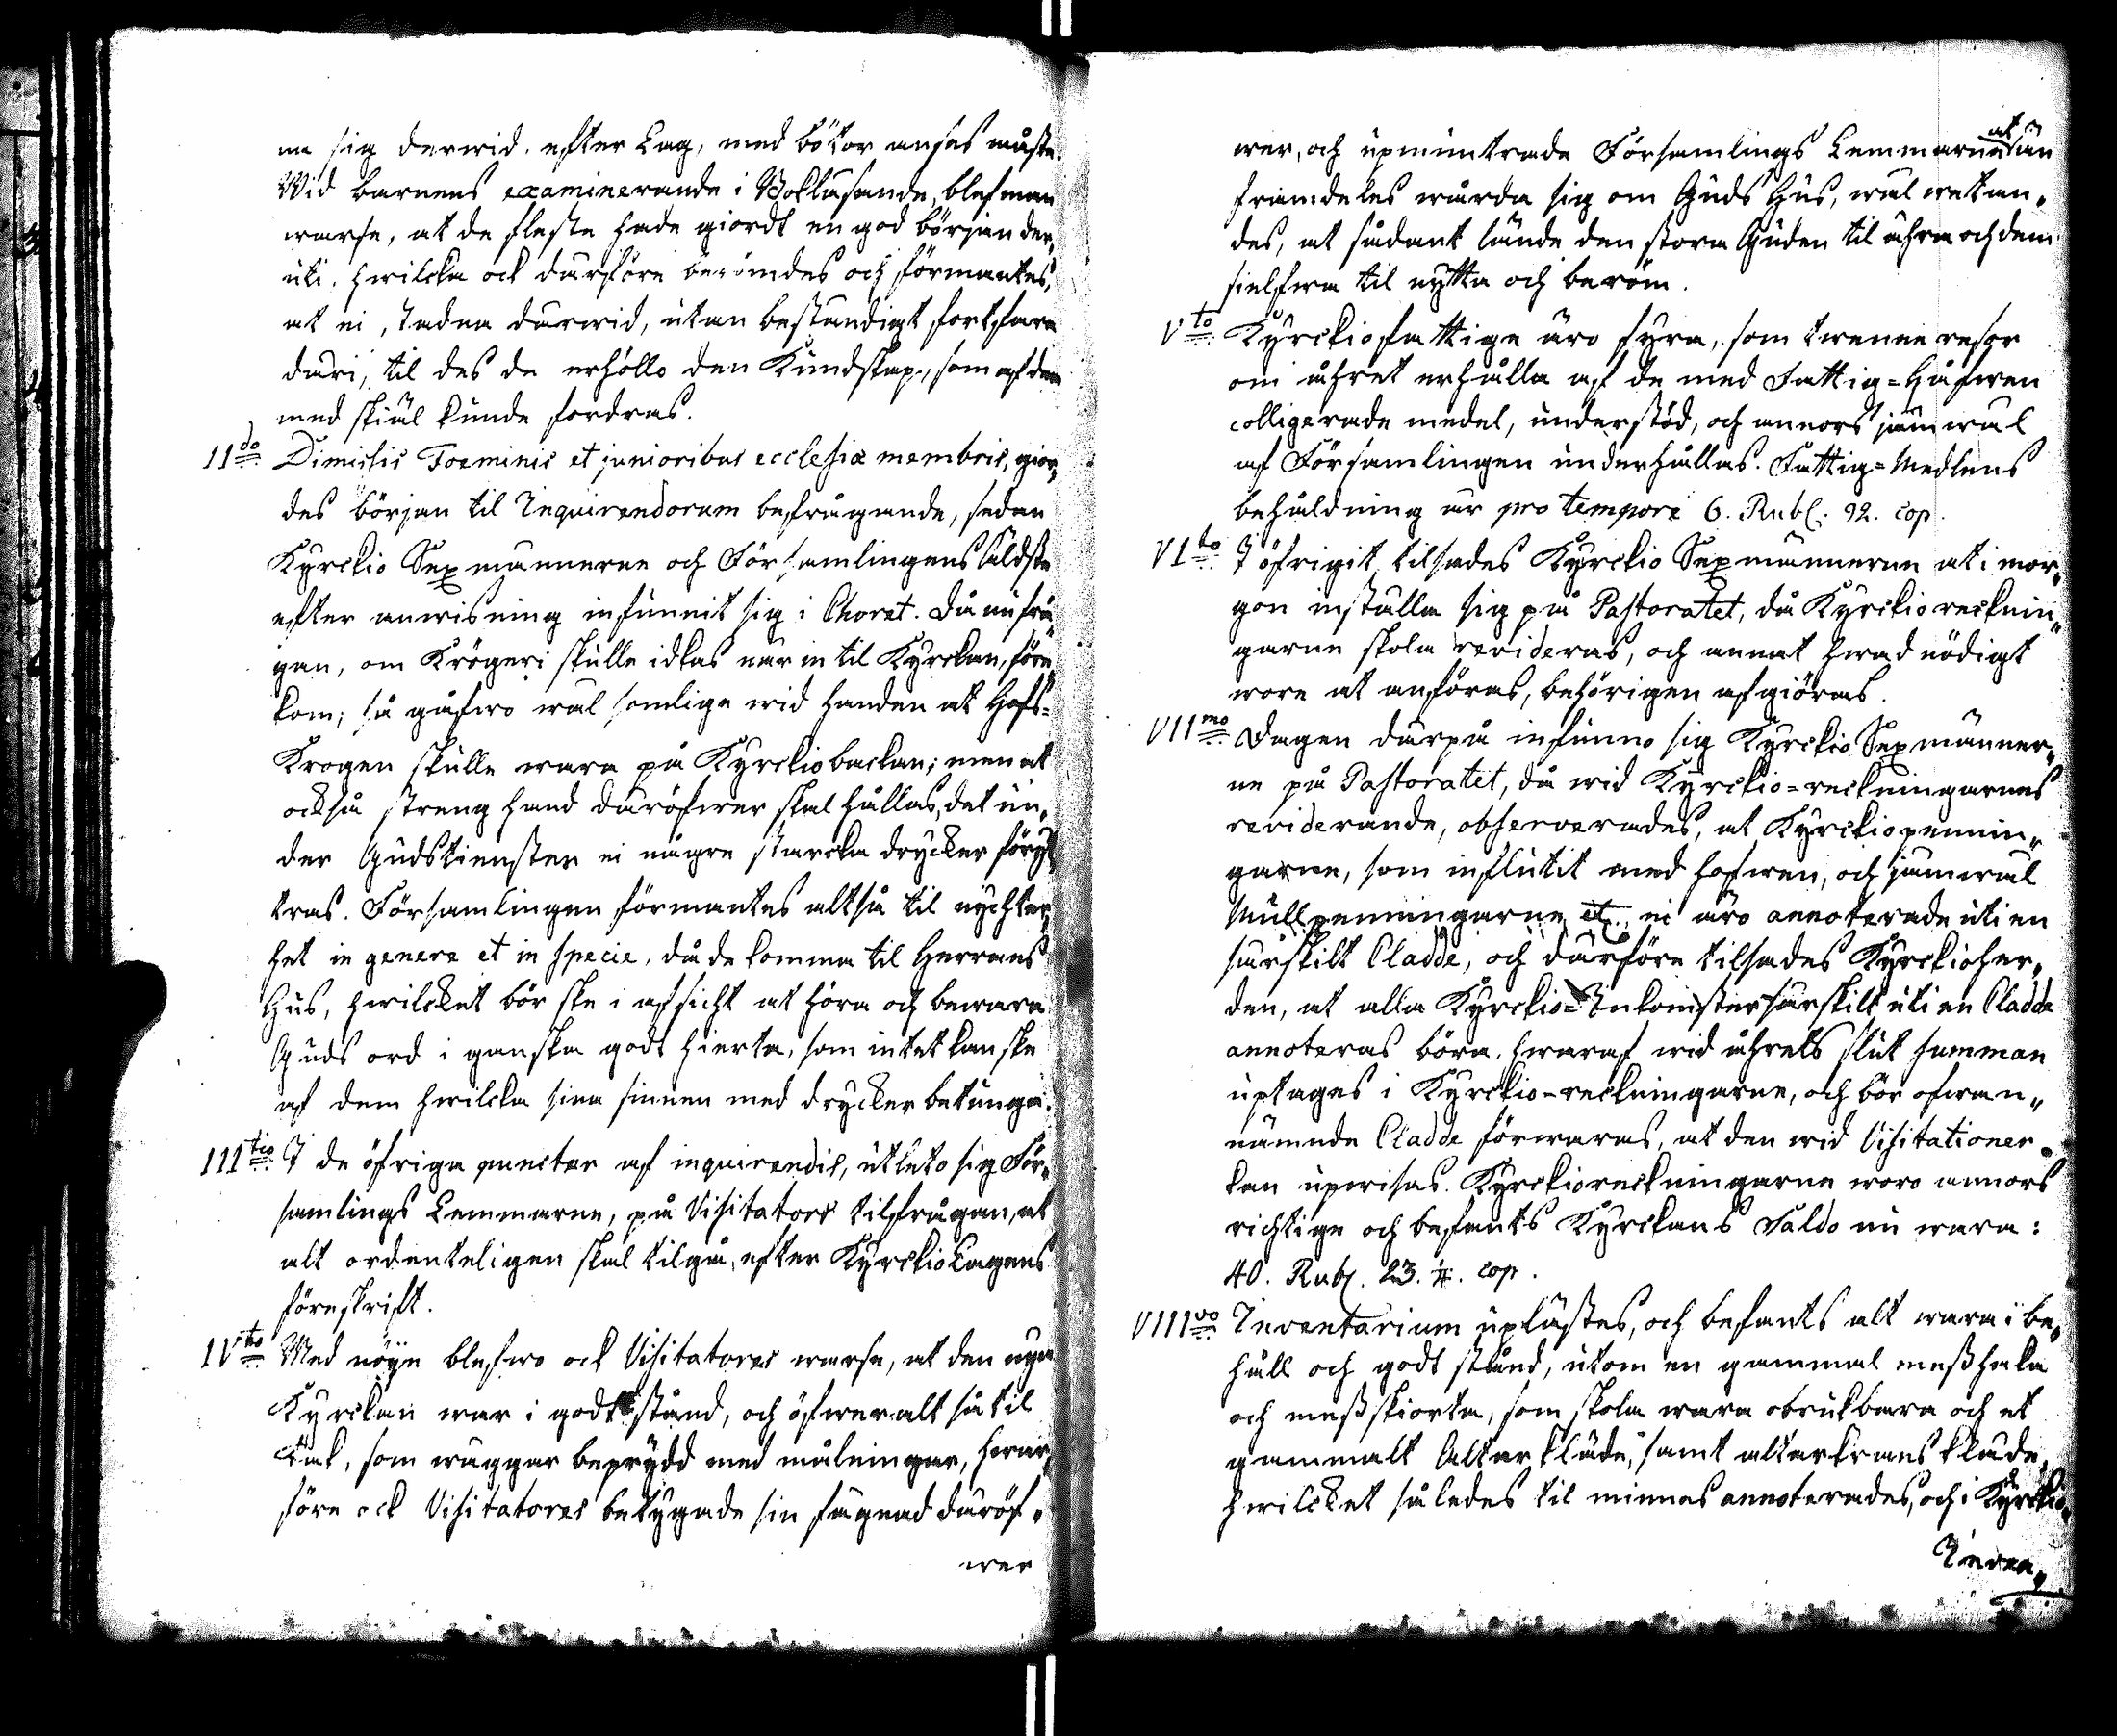 na sig derwid. efter Lag, med böter anses måste.
Wid barnens examinerande i Bokläsande, blef man
warse, at de fleste hade giordt en god början der,
uti. hwilcka ock därföre berömdes och förmantes,
at ei stadna därwid, utan beständigt fortfara
däri, til des de erhöllo den Kundskap, som af dem
med skiäl kunde fordras.
II do Dimissis Foeminis et junioribus ecclesiæ membris, gior,
des början til Inquirendorum befrågande, sedan
Kyrckio Sexmännerne och Församlingens Äldste
efter anwisning infunnit sig i Choret. Då nu frå,,
gan, om Krögeri skulle idkas när in til Kyrckan, före,
kom; så gåfwo wäl somlige wid handen at Hofs-
Krogen skulle wara på Kyrckiobackan; men at
ock så streng hand däröfwer skal hållas, det un,
der Gudstiensten ei några starcka drycker föryt,
tras. Församlingen förmantes altså til nychter,
het in genere et in specie, då de komma til Herrans
Hus, hwilcket bör ske i afsicht at höra och bewara
Guds ord i ganska godt hierta, som intet kan ske
af dem hwilcka sina sinnen med drycker betunga.
III tio I de öfriga puncter af inquirendis, utläto sig För,
samlings Lemmarne, på Visitators tilfrågan, at
alt ordenteligen skal tilgå, efter Kyrckio Lagens
föreskrift.
IV to Med nöye blefwo ock Visitatores warse, at den nya
Kyrckan war i godt stånd, och öfweralt så til
tak, som wäggar beprydd med målningar, hwar,
före ock Visitatores betygade sin fägnad däröf,
wer
wer, och upmuntrade Församlings Lemmarne at än
framdeles wårda sig om Guds Hus, wäl wetan,
des, at sådant lände den stora Guden til ähra och dem
sielfwa til nytta och beröm.
V to Kyrckiofattige äro fyra, som twenne resor
om åhret erhålla af de med Fattig=Håfwen
colligerade medel, understöd, och annors jämwäl
af Församlingen underhållas. Fattig=Medlens
behåldning är pro tempore 6. Rubl. 92. cop.
VI to I öfrigit tilsades Kyrckio Sexmännerne at i mor,,
gon inställa sig på Pastoratet, då Kyrckioräcknin,,
garne skola revideras, och annat hwad nödigt
wore at anföras, behörigen afgiöras.
VII mo Dagen därpå infunno sig Kyrckio Sexmänner,,
ne på Pastoratet, då wid Kyrckio=reckningarnes
reviderande, observerades, at Kyrckiopennin,,
garne, som influtit med hofwen, och jämwäl
Mullpenningarne ei äro annoterade uti en
särskilt Cladde, och därföre tilsades Kyrckioher,
den, at alla Kyrckio=Inkomster särskilt uti en Cladde
annoteras böra, hwaraf wid åhrets slut summan
uptages i Kyrckio-reckningarne, och bör ofwan,,
nämnde Cladde förwaras, at den wid Visitationer
kan upwisas. Kyrckioreckningarne woro annors
richtige och befants Kyrckans Saldo nu wara:
40. Rubl. 23. cop.
VIII vo Inventarium uplästes, och befants alt wara i be,
håll och godt stånd, utom en gammal messhaka
och messskiorta, som skola wara obrukbara och et
gammalt Altarkläde, samt altarkranskläde,
hwilcket således til minnes annoterades, och i Kyrckio,
Inven,